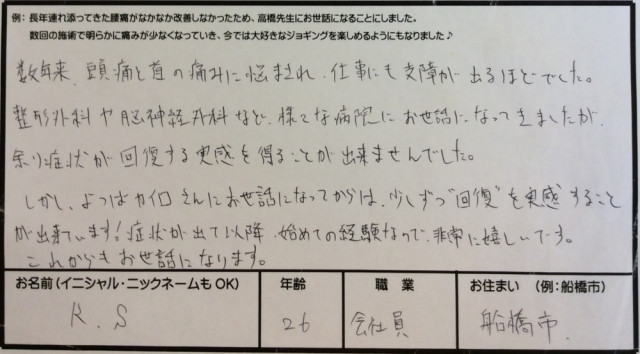 例：長年連れ添ってきた腰痛がなかなか改善しなかったため、高橋先生にお世話になることにしました。
数回の施術で明らかに痛みが少なくなっていき、今では大好きなジョギングを楽しめるようにもなりました♪
数年来、頭痛と首の痛みに悩まされ、仕事にも支障が出るほどでした。
整形外科や脳神経外科など、様々な病院にお世話になってきましたが、
余り症状が回復する実感を得ることが出来ませんでした。
しかし、よつばカイロさんにお世話になってからは、少しずつ"回復"を実感すること
が出来ています！症状が出て以降、始めての経験なので、非常に嬉しいです。
これからもお世話になります。
お名前（イニシャル・ニックネームもOK） 年齢 職業 お住まい （例：船橋市）
K.S 26 会社員 船橋市.